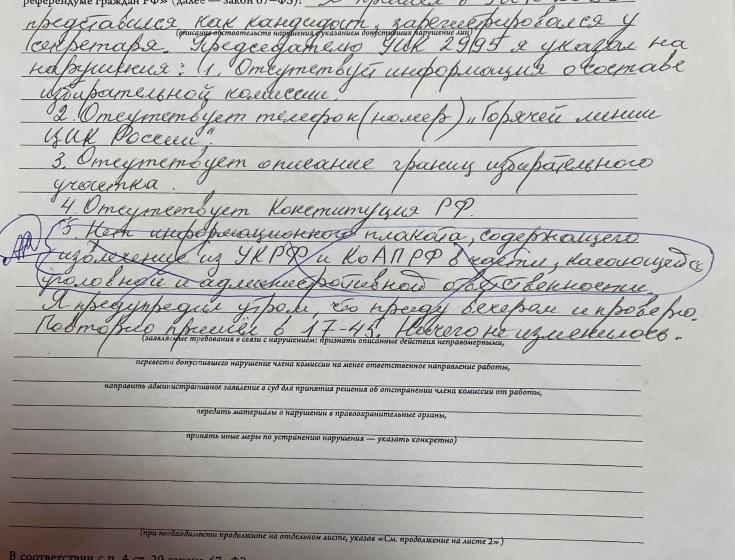 референдуме граждан РФ» (далее — закон 67-ФЗ):
представился как кандидат, зарегистрировался у
(описание обстоятельств нарушения, указанием допустивших нарушение лиц)
секретаря. Председателю УИК 2995 я указал на
нарушения: 1. Отсутствует информация о составе
избирательной комиссии.
2. Отсутствует телефон (номер) „Горячей линии
ЦИК России".
3. Отсутствует описание границ избирательного
участка.
4. Отсутствует Конституция РФ.
5. Нет информационного плаката, содержащего
извлечение из УКРФ и КоАПРФ в части, касающейся
уголовной и административной ответственности.
Я предупредил утром, что приеду вечером и проверю.
Повторно пришёл в 17-45. Ничего не изменилось.
(заявляемые требования в связи с нарушением: признать описанные действия неправомерными,
перевести допустившего нарушение члена комиссии на менее ответственное направление работы,
направить административное заявление в суд для принятия решения об отстранении члена комиссии от работы,
передать материалы о нарушении в правоохранительные органы,
принять иные меры по устранению нарушения — указать конкретно)
(при необходимости продолжите на отдельном листе, указав «См. продолжение на листе 2»)
В соответствии с п. 4 ст. 20 закона 67-ФЗ